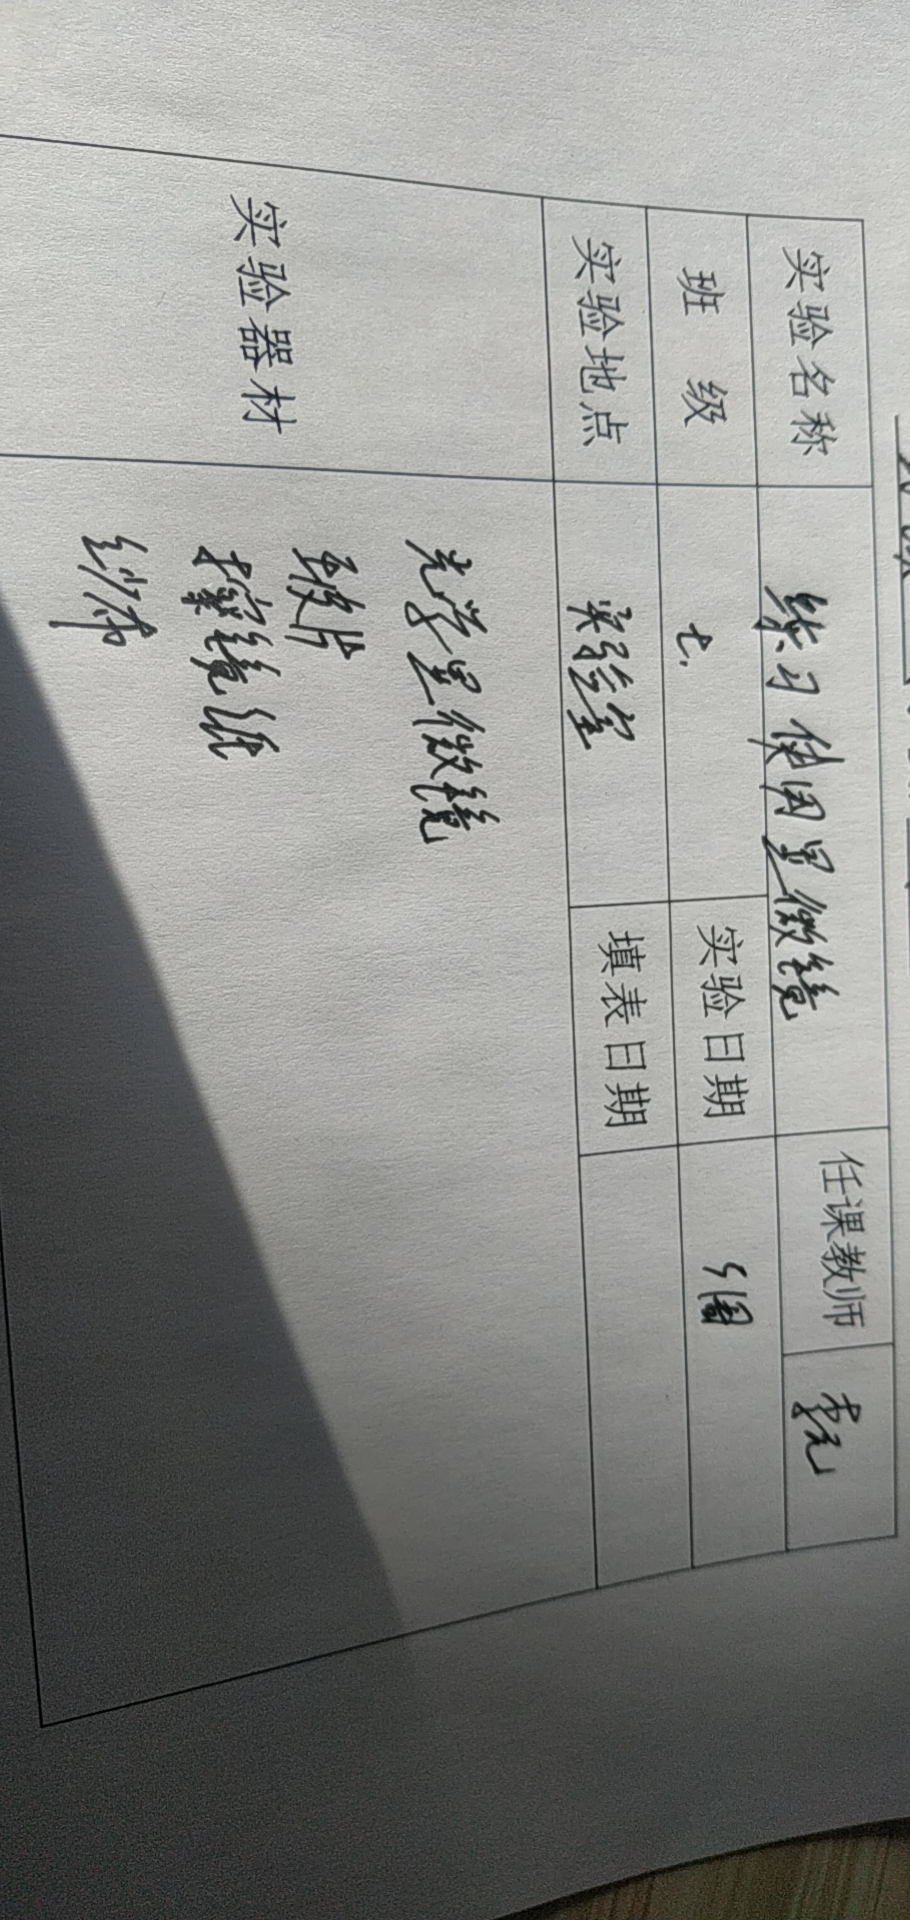 实验名称 练习使用显微镜 任课教师
班 级 七. 实验日期 5周
实验地点 实验室 填表日期
实验器材 光学显微镜
玻片
擦镜纸
纱布